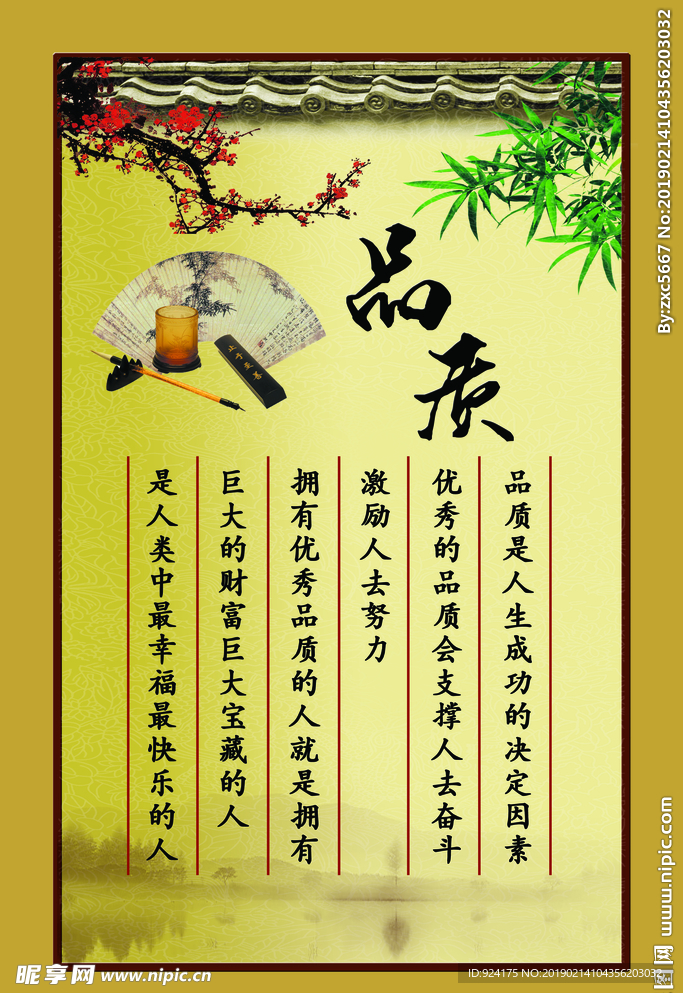 品质
品质是人生成功的决定因素
优秀的品质会支撑人去奋斗
激励人去努力
拥有优秀品质的人就是拥有
巨大的财富巨大宝藏的人
是人类中最幸福最快乐的人
止于至善
By:zxc5667 No:20190214104356203032
www.nipic.com
昵图网
昵享网 www.nipic.cn
ID:924175 NO:20190214104356203032